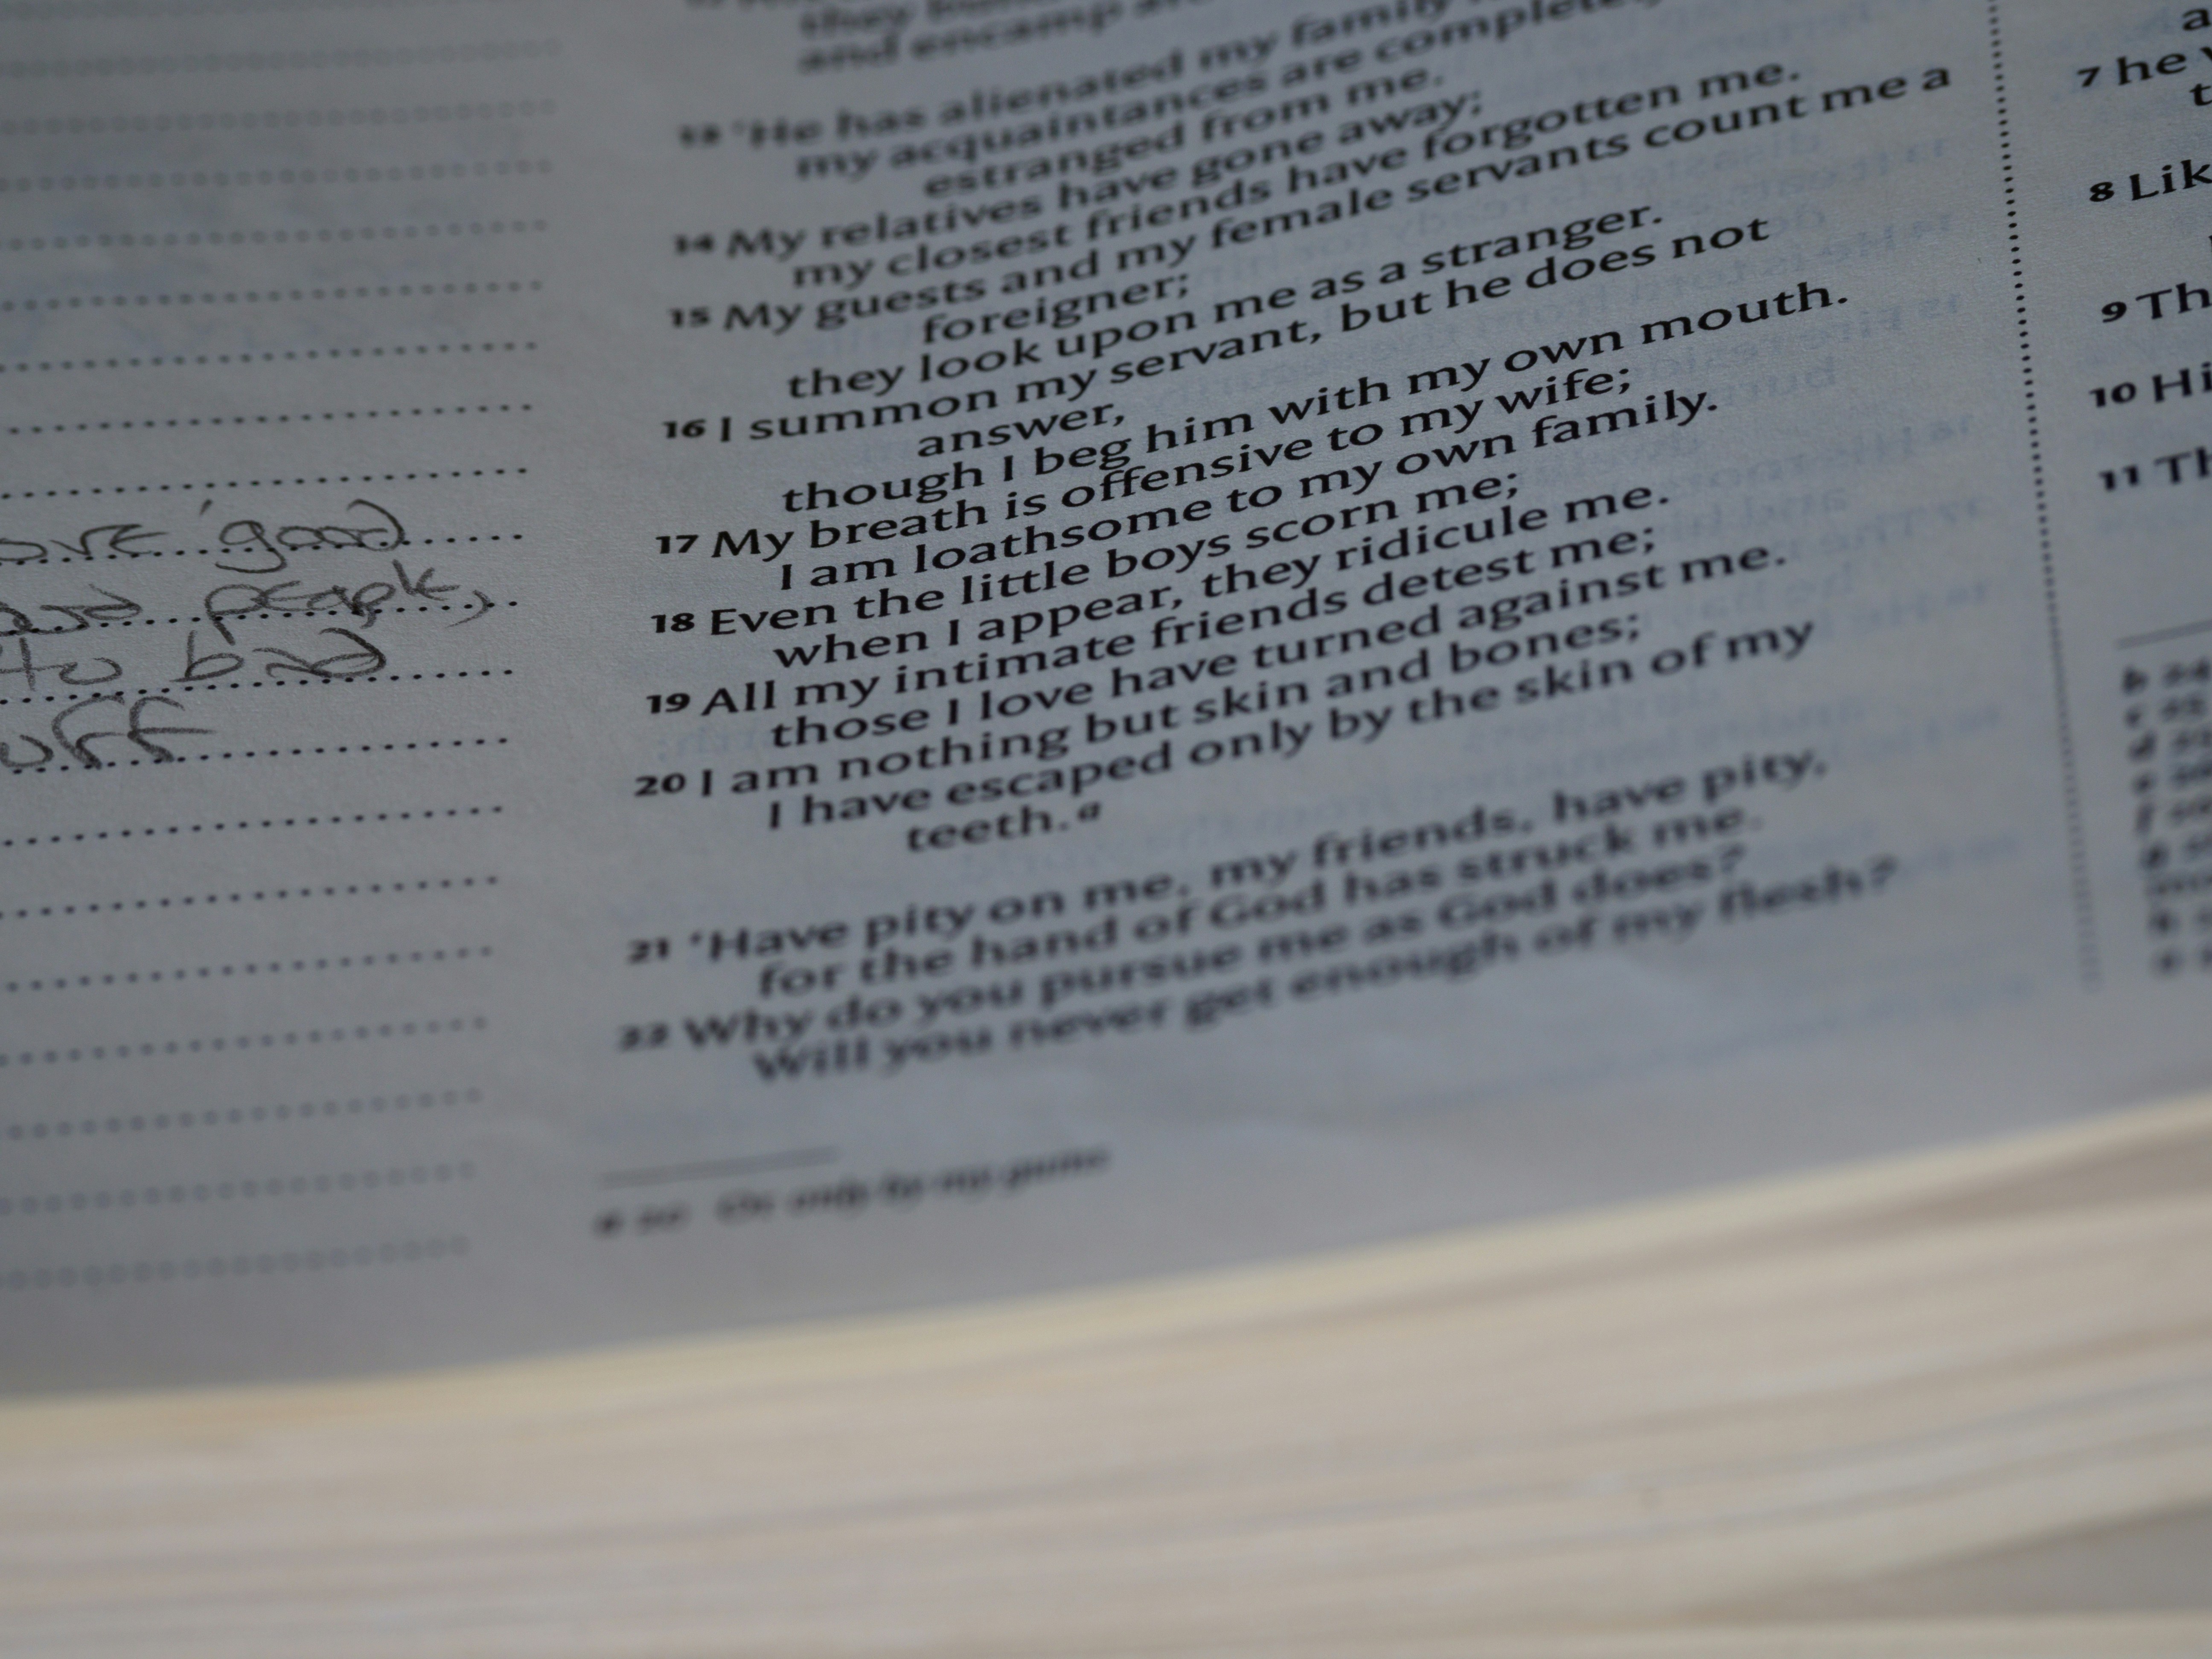 good
people,
to bad
they
and encamp
13 'He has alienated my family
my acquaintances are completely
estranged from me.
14 My relatives have gone away;
my closest friends have forgotten me.
15 My guests and my female servants count me a
foreigner;
they look upon me as a stranger.
16 I summon my servant, but he does not
answer,
though I beg him with my own mouth.
17 My breath is offensive to my wife;
I am loathsome to my own family.
18 Even the little boys scorn me;
when I appear, they ridicule me.
19 All my intimate friends detest me;
those I love have turned against me.
20 I am nothing but skin and bones;
I have escaped only by the skin of my
teeth.a
21 'Have pity on me, my friends, have pity,
for the hand of God has struck me.
22 Why do you pursue me as God does?
Will you never get enough of my flesh?
a 20 Or only by my gums
7 he
8 Lik
9 Th
10 Hi
11 Th